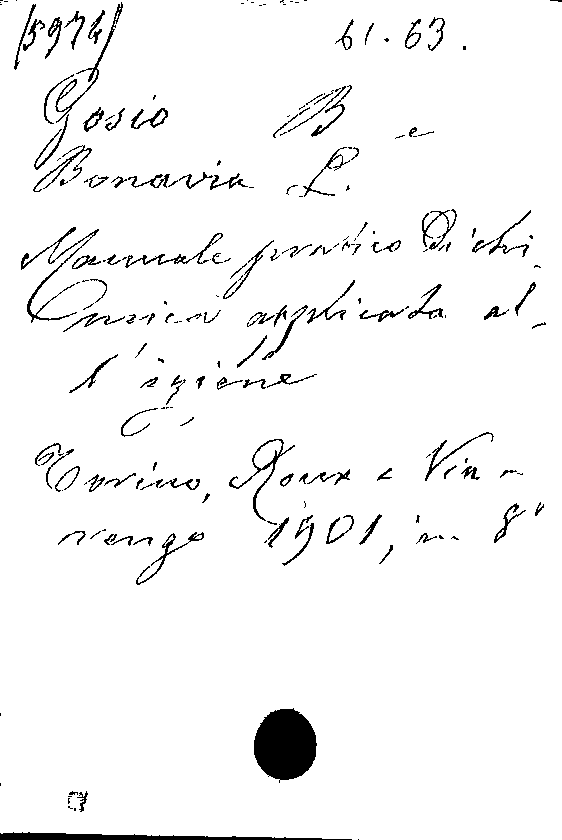 (5974) 61.63.
Gosio B e
Bonavia L.
Manuale pratico di chi-
mica applicata al-
l'igiene
Torino, Roux e Via-
rengo 1901, in 8°